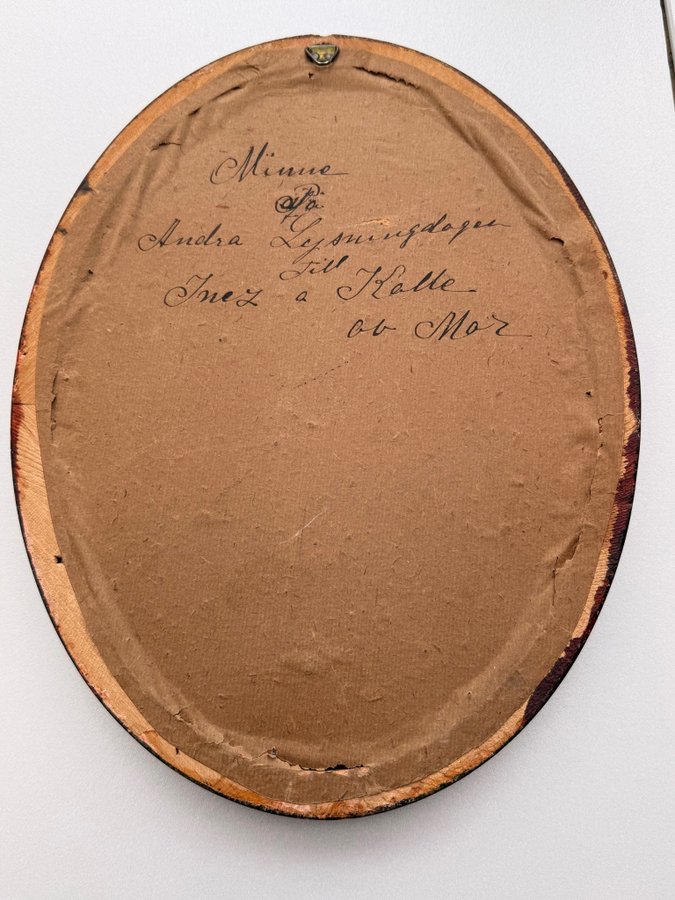 Minne
På
Andra Lysningdagen
Till
Inez a Kalle
av Mor